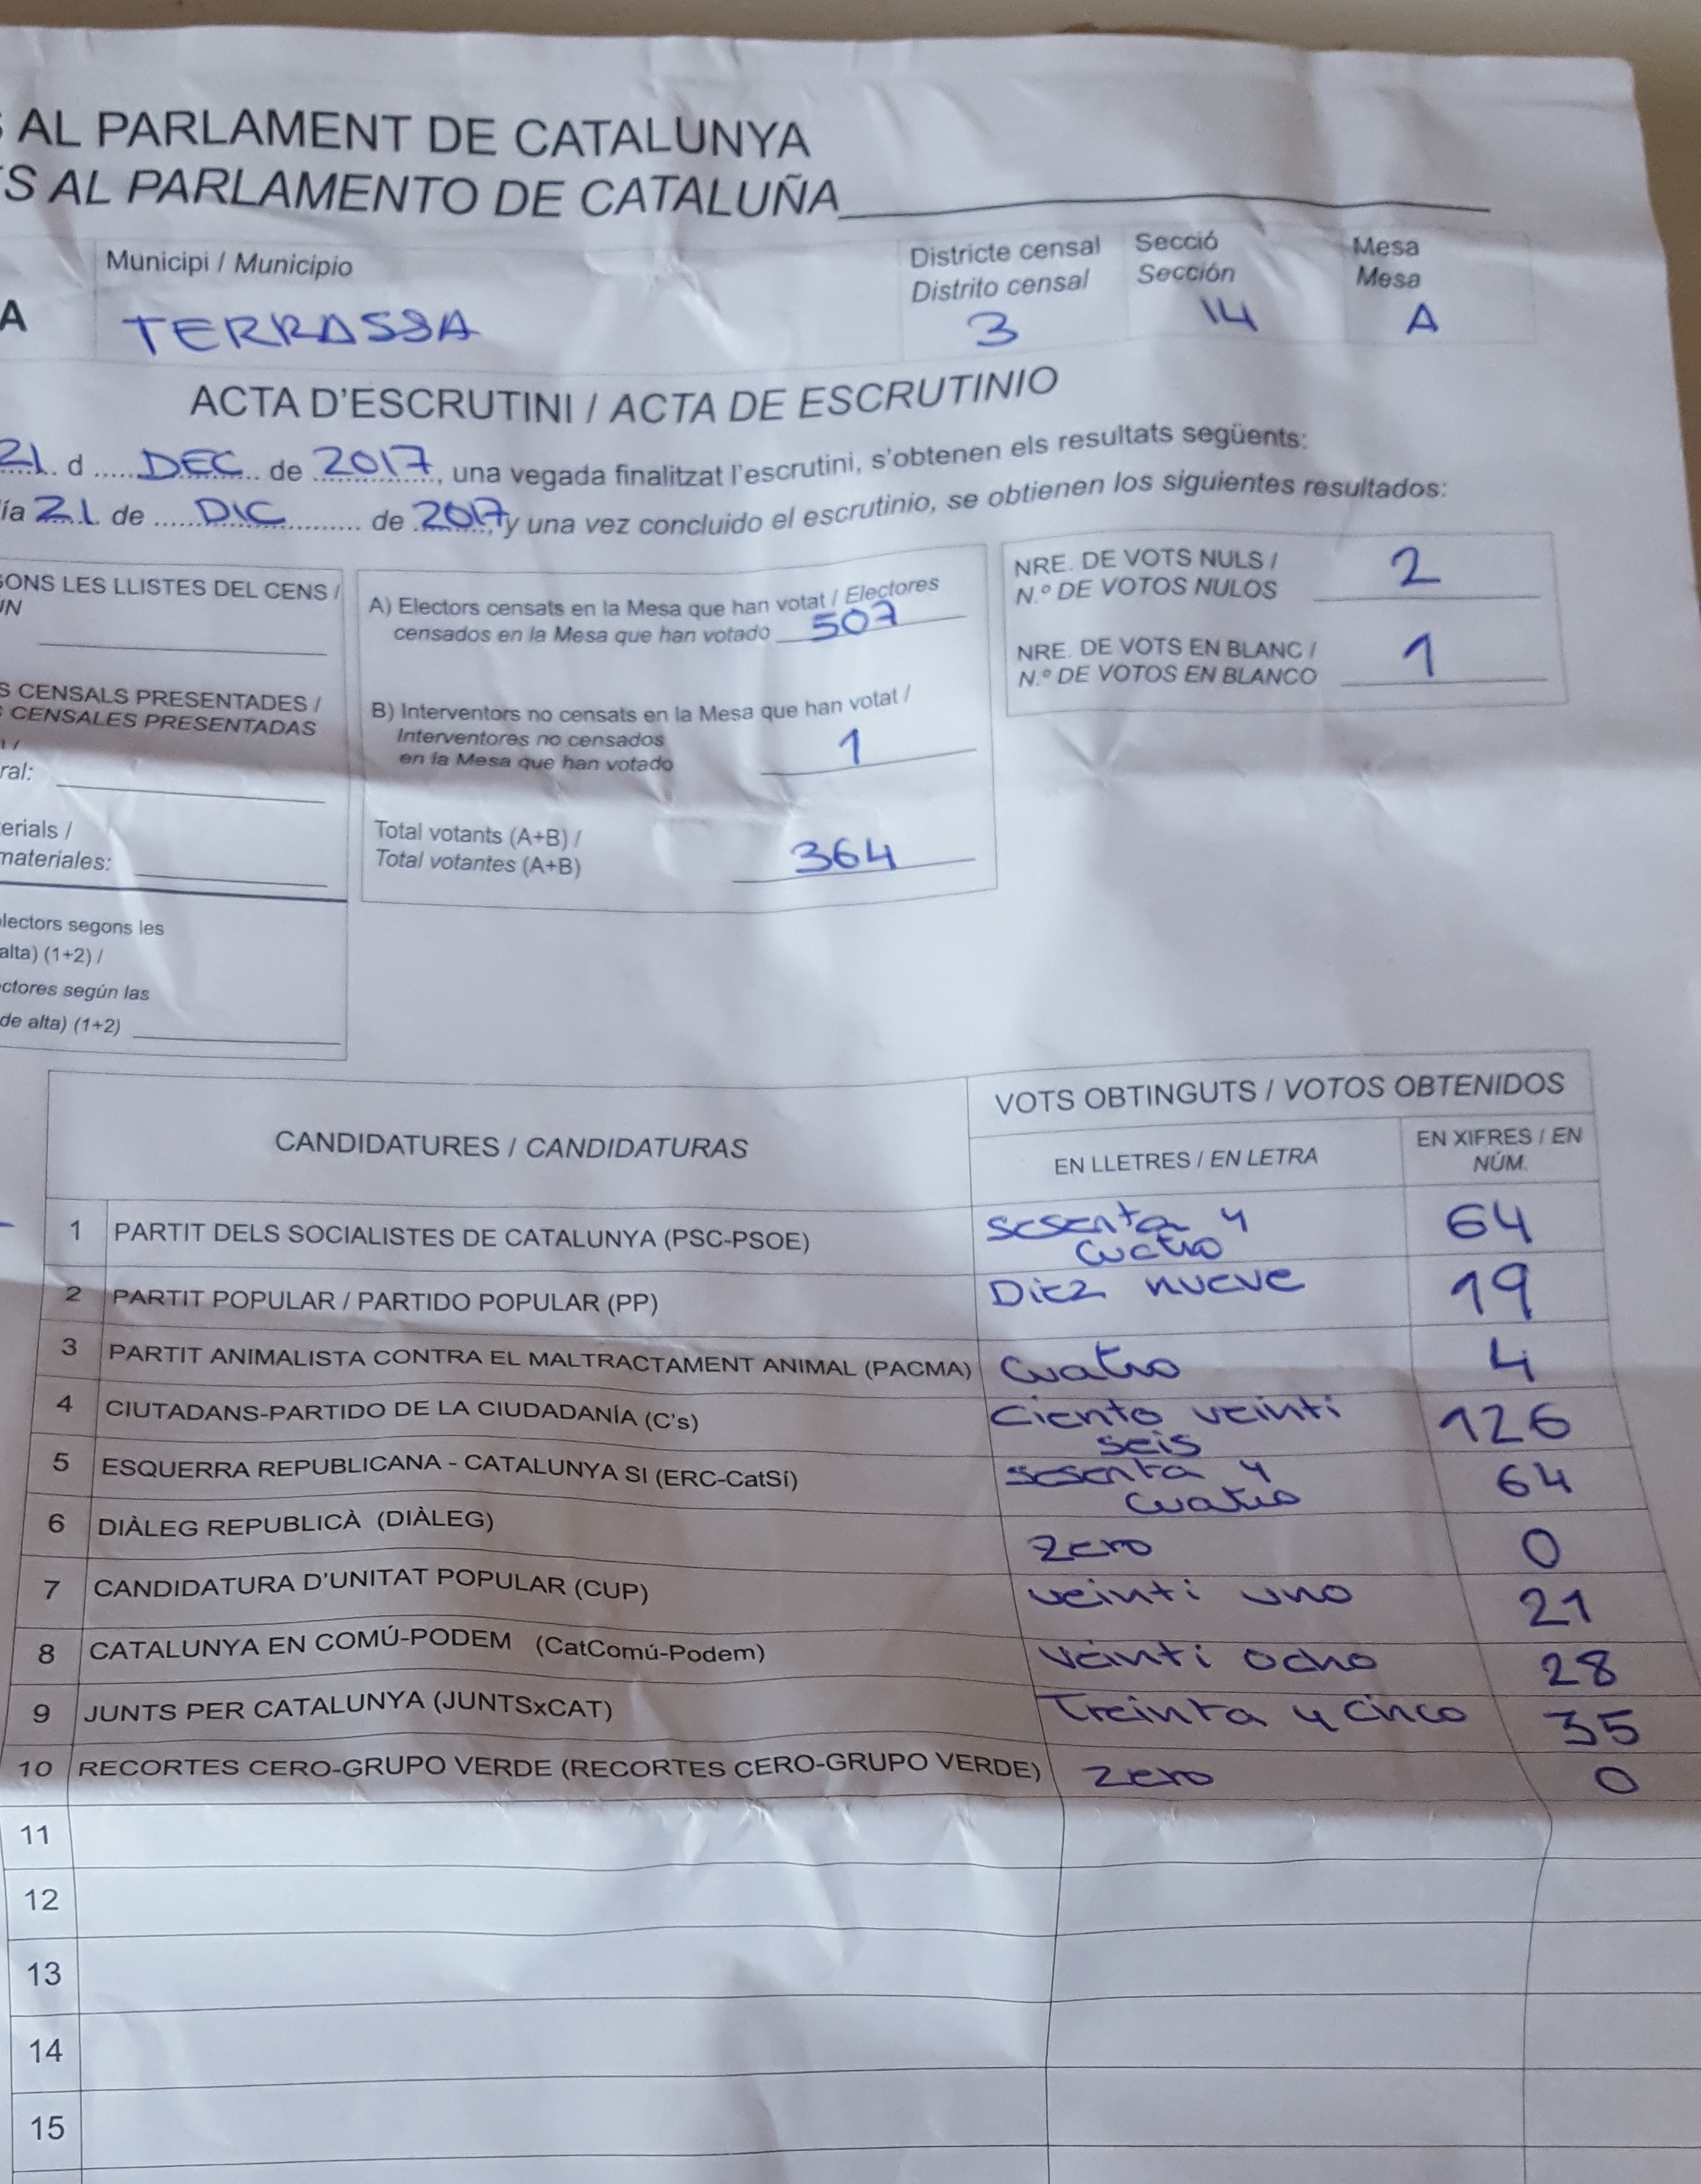 AL PARLAMENT DE CATALUNYA
S AL PARLAMENTO DE CATALUÑA
Municipi / Municipio
Districte censal
Distrito censal
Secció
Sección
Mesa
Mesa
A
TERRASSA
3
14
A
ACTA D'ESCRUTINI / ACTA DE ESCRUTINIO
21 d DEC de 2017, una vegada finalitzat l'escrutini, s'obtenen els resultats següents:
ía 21 de DIC de 2017 y una vez concluido el escrutinio, se obtienen los siguientes resultados:
GONS LES LLISTES DEL CENS /
ÚN
S CENSALS PRESENTADES /
CENSALES PRESENTADAS
ral:
erials /
materiales:
lectors segons les
alta) (1+2) /
ctores según las
de alta) (1+2)
A) Electors censats en la Mesa que han votat / Electores
censados en la Mesa que han votado 507
B) Interventors no censats en la Mesa que han votat /
Interventores no censados
en la Mesa que han votado 1
Total votants (A+B) /
Total votantes (A+B) 364
NRE. DE VOTS NULS /
N.º DE VOTOS NULOS 2
NRE. DE VOTS EN BLANC /
N.º DE VOTOS EN BLANCO 1
CANDIDATURES / CANDIDATURAS
VOTS OBTINGUTS / VOTOS OBTENIDOS
EN LLETRES / EN LETRA
EN XIFRES / EN
NÚM.
1 PARTIT DELS SOCIALISTES DE CATALUNYA (PSC-PSOE) sesenta y
cuatro 64
2 PARTIT POPULAR / PARTIDO POPULAR (PP) Diez nueve 19
3 PARTIT ANIMALISTA CONTRA EL MALTRACTAMENT ANIMAL (PACMA) Cuatro 4
4 CIUTADANS-PARTIDO DE LA CIUDADANÍA (C's) Ciento veinti
seis 126
5 ESQUERRA REPUBLICANA - CATALUNYA SI (ERC-CatSí) sesenta y
cuatro 64
6 DIÀLEG REPUBLICÀ (DIÀLEG) zero 0
7 CANDIDATURA D'UNITAT POPULAR (CUP) veinti uno 21
8 CATALUNYA EN COMÚ-PODEM (CatComú-Podem) veinti ocho 28
9 JUNTS PER CATALUNYA (JUNTSxCAT) Treinta y cinco 35
10 RECORTES CERO-GRUPO VERDE (RECORTES CERO-GRUPO VERDE) zero 0
11
12
13
14
15